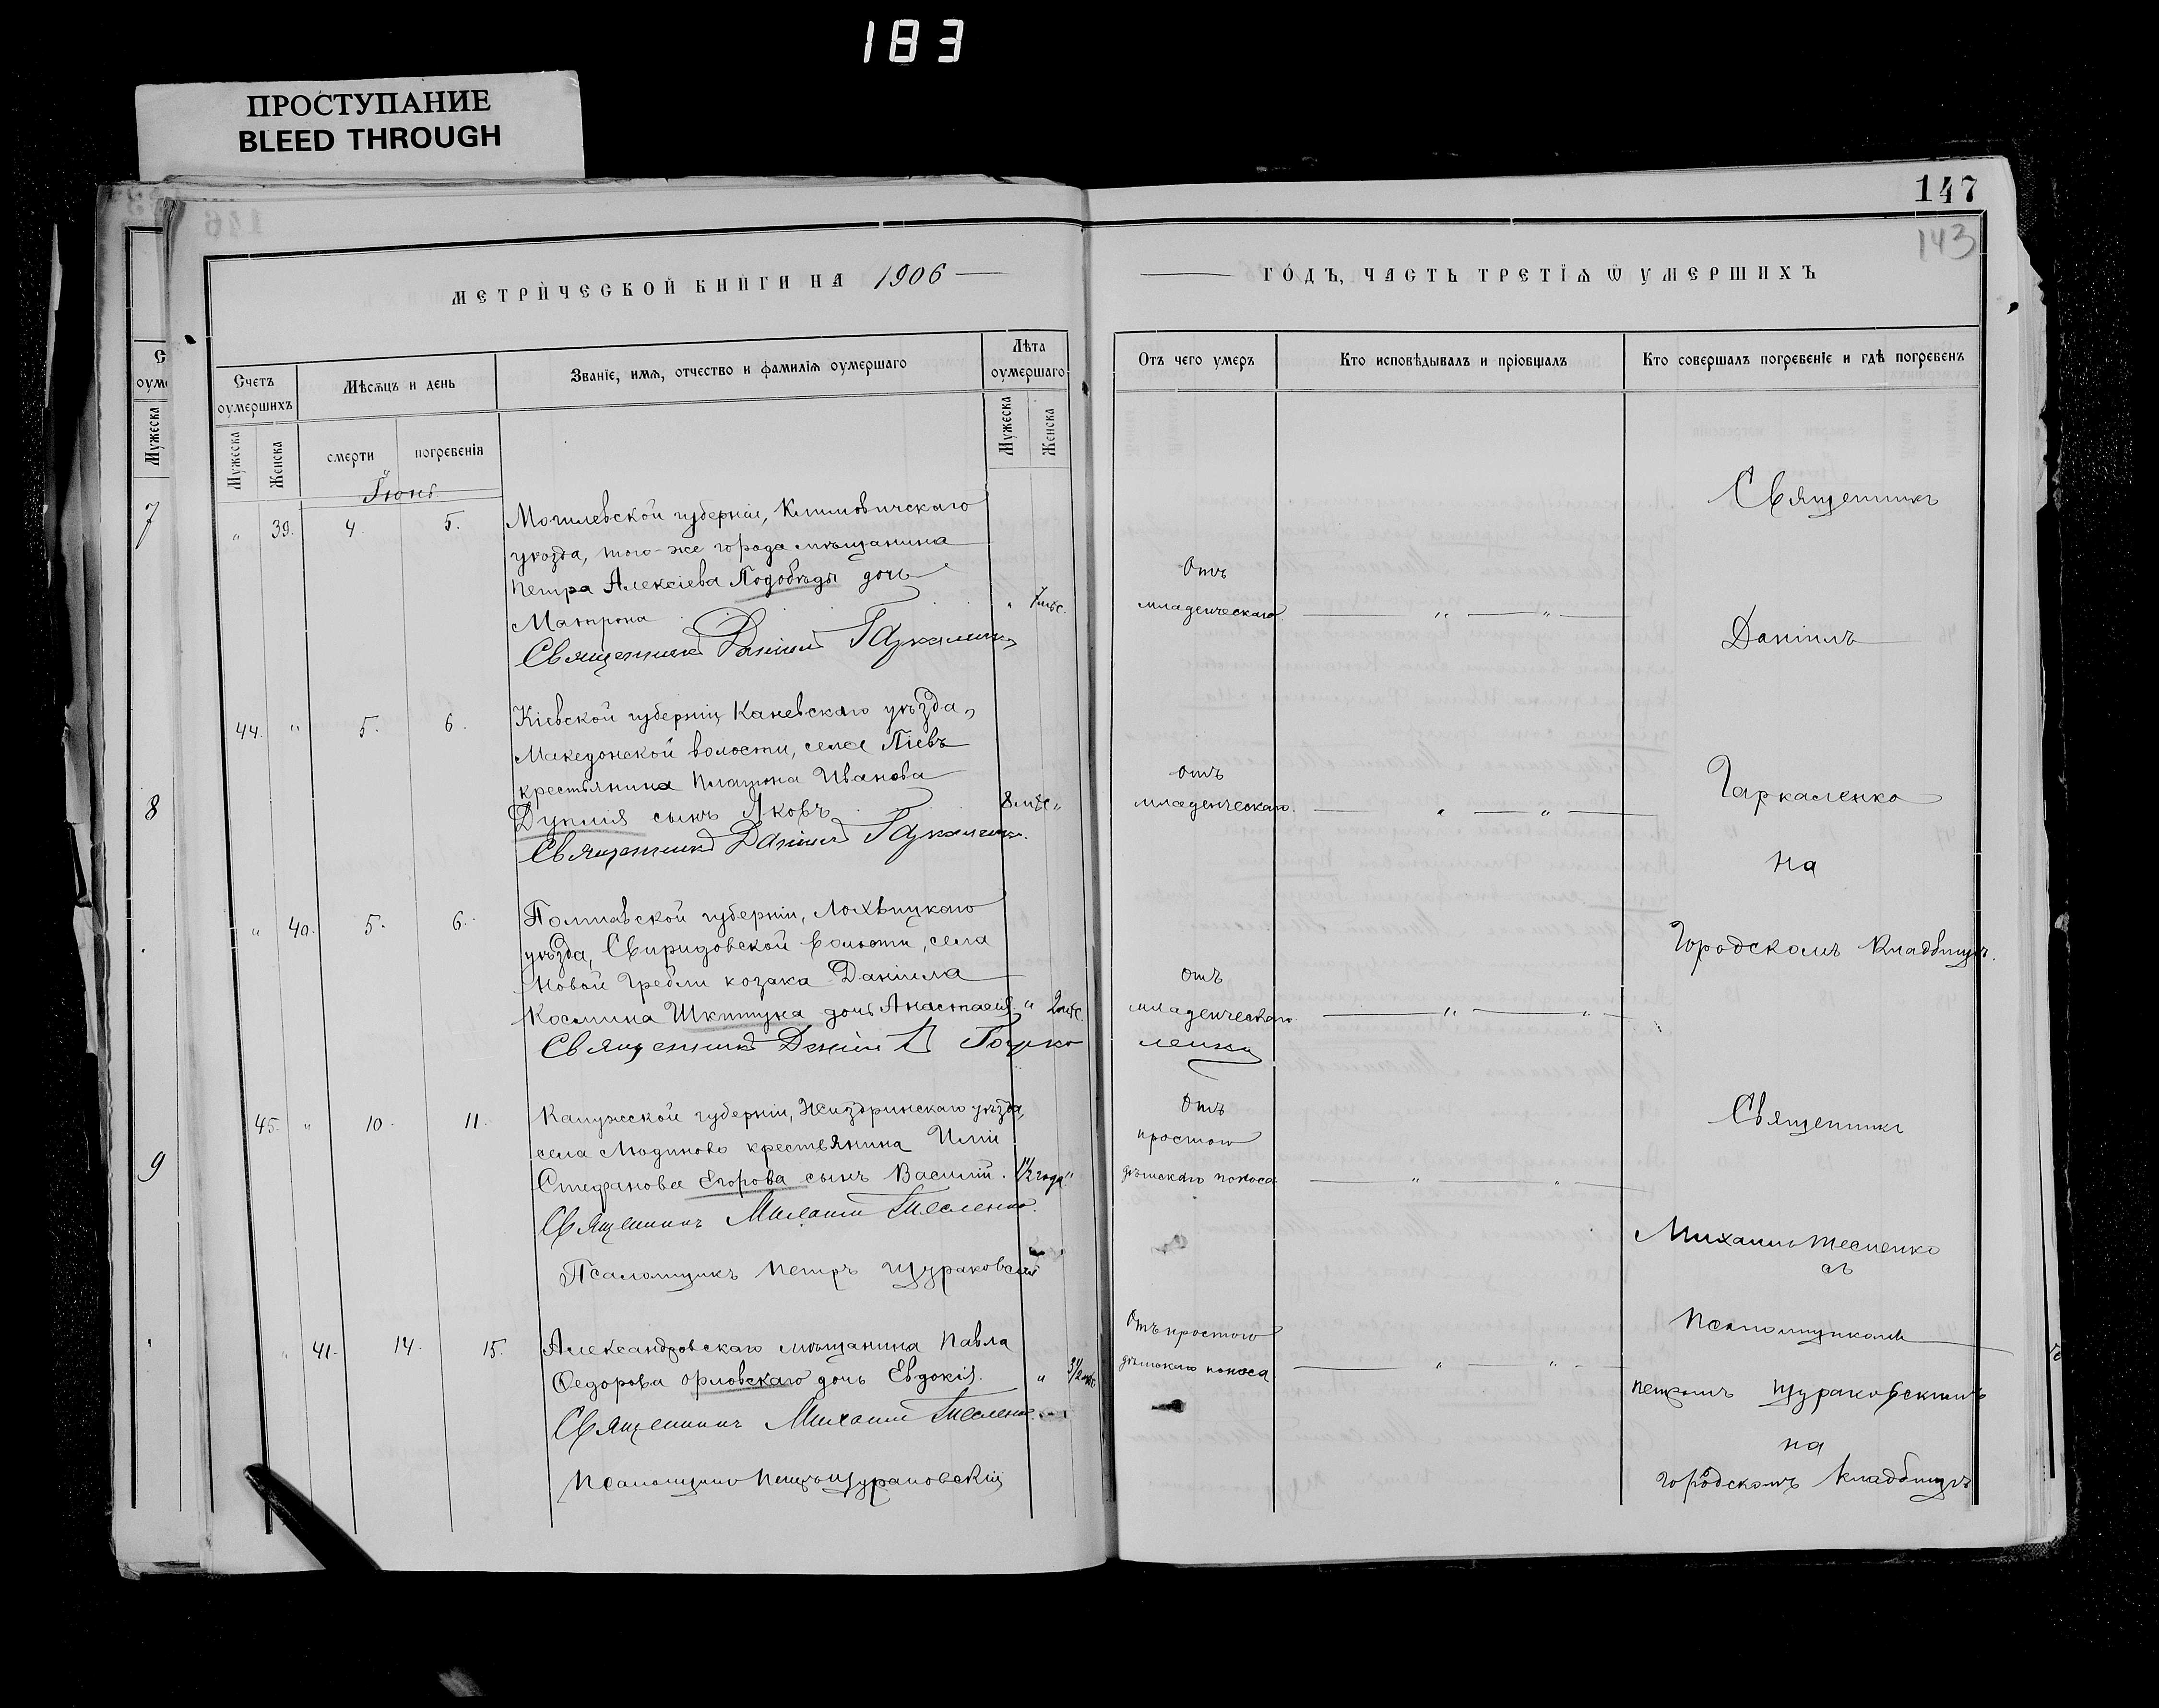 183
ПРОСТУПАНИЕ
BLEED THROUGH
147
143
МЕТРИЧЕСКОЙ КНИГИ НА 1906
ГОДЪ, ЧАСТЬ ТРЕТІѦ Ѿ УМЕРШИХЪ
Счетъ оумершихъ
Мужеска
Женска
Мѣсѧцъ и день
смерти
погребенія
Званіе, имѧ, отчество и фамиліѧ оумершаго
Лѣта оумершаго
Мужеска
Женска
Отъ чего умеръ
Кто исповѣдывалъ и пріобщалъ
Кто совершалъ погребеніе и гдѣ погребенъ
Іюнь
" 39. 4. 5.
Могилевской губерніи, Климовичскаго
уѣзда, того-же города мѣщанина
Петра Алексіева Подобѣды дочь
Матрона " 7 мѣс.
Священникъ Даніилъ Гаркаленко
Отъ
младенческаго
44. " 5. 6.
Кіевской губерніи, Каневскаго уѣзда,
Македонской волости, села Піевъ
крестьянина Платона Иванова
сынъ Яковъ 8 мѣс. "
Священникъ Даніилъ Гаркаленко
отъ
младенческаго.
" 40. 5. 6.
Полтавской губерніи, Лохвицкаго
уѣзда, Свиридовской волости, села
Новой Гребли козака Даніила
Космина дочь Анастасія " 2 мѣс.
Священникъ Даніилъ Гарка
ленко
отъ
младенческаго
Священникъ
Даніилъ
Гаркаленко
на
Городскомъ Кладбищѣ.
45. " 10. 11.
Калужской губерніи, Жиздринскаго уѣзда,
села Модиново крестьянина Иліи
Стефанова Егорова сынъ Василій. 1½ года "
Священникъ Михаилъ Тесленко.
Псаломщикъ Петръ Щураковскій
Отъ
простого
дѣтскаго поноса
" 41. 14. 15.
Александровскаго мѣщанина Павла
Ѳедорова Орловскаго дочь Евдокія. " 3½ мѣс.
Священникъ Михаилъ Тесленко
Псаломщикъ Петръ Щураковскій
Отъ простого
дѣтскаго поноса
Священникъ
Михаилъ Тесленко
съ
Псаломщикомъ
Петромъ Щураковскимъ
на
городскомъ кладбищѣ
7
8
9